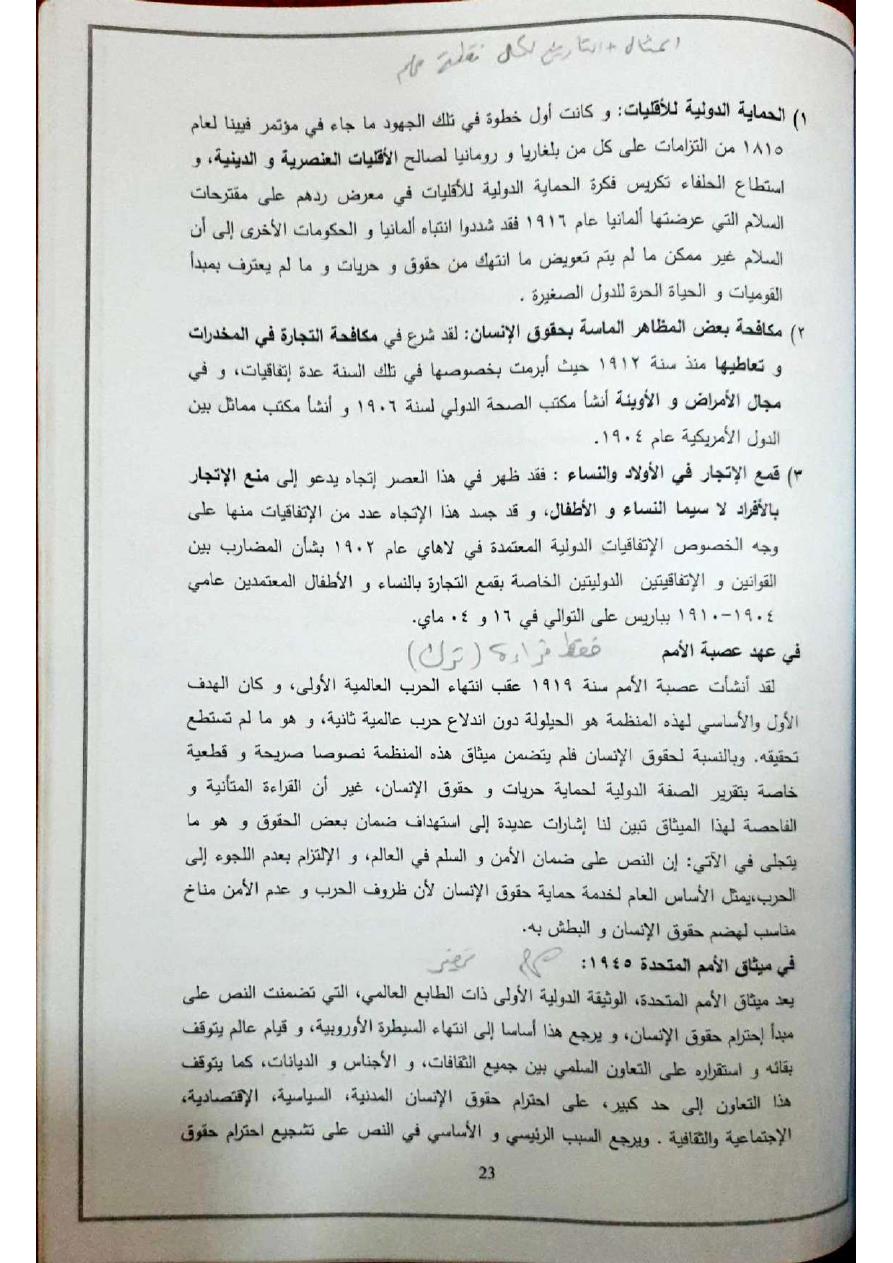 المثال + التاريخ لكل نقطة مهم
١) الحماية الدولية للأقليات: و كانت أول خطوة في تلك الجهود ما جاء في مؤتمر فيينا لعام
١٨١٥ من التزامات على كل من بلغاريا و رومانيا لصالح الأقليات العنصرية و الدينية، و
استطاع الحلفاء تكريس فكرة الحماية الدولية للأقليات في معرض ردهم على مقترحات
السلام التي عرضتها ألمانيا عام ١٩١٦ فقد شددوا انتباه ألمانيا و الحكومات الأخرى إلى أن
السلام غير ممكن ما لم يتم تعويض ما انتهك من حقوق و حريات و ما لم يعترف بمبدأ
القوميات و الحياة الحرة للدول الصغيرة .
٢) مكافحة بعض المظاهر الماسة بحقوق الإنسان: لقد شرع في مكافحة التجارة في المخدرات
و تعاطيها منذ سنة ١٩١٢ حيث أبرمت بخصوصها في تلك السنة عدة إتفاقيات، و في
مجال الأمراض و الأوبئة أنشأ مكتب الصحة الدولي لسنة ١٩٠٦ و أنشأ مكتب مماثل بين
الدول الأمريكية عام ١٩٠٤.
٣) قمع الإتجار في الأولاد والنساء : فقد ظهر في هذا العصر إتجاه يدعو إلى منع الإتجار
بالأفراد لا سيما النساء و الأطفال، و قد جسد هذا الإتجاه عدد من الإتفاقيات منها على
وجه الخصوص الإتفاقيات الدولية المعتمدة في لاهاي عام ١٩٠٢ بشأن المضارب بين
القوانين و الإتفاقيتين الدوليتين الخاصة بقمع التجارة بالنساء و الأطفال المعتمدين عامي
١٩٠٤-١٩١٠ بباريس على التوالي في ١٦ و ٠٤ ماي.
في عهد عصبة الأمم فقط قراءة (ترك)
لقد أنشأت عصبة الأمم سنة ١٩١٩ عقب انتهاء الحرب العالمية الأولى، و كان الهدف
الأول والأساسي لهذه المنظمة هو الحيلولة دون اندلاع حرب عالمية ثانية، و هو ما لم تستطع
تحقيقه. وبالنسبة لحقوق الإنسان فلم يتضمن ميثاق هذه المنظمة نصوصا صريحة و قطعية
خاصة بتقرير الصفة الدولية لحماية حريات و حقوق الإنسان، غير أن القراءة المتأنية و
الفاحصة لهذا الميثاق تبين لنا إشارات عديدة إلى استهداف ضمان بعض الحقوق و هو ما
يتجلى في الآتي: إن النص على ضمان الأمن و السلم في العالم، و الإلتزام بعدم اللجوء إلى
الحرب،يمثل الأساس العام لخدمة حماية حقوق الإنسان لأن ظروف الحرب و عدم الأمن مناخ
مناسب لهضم حقوق الإنسان و البطش به.
في ميثاق الأمم المتحدة ١٩٤٥: مهم
يعد ميثاق الأمم المتحدة، الوثيقة الدولية الأولى ذات الطابع العالمي، التي تضمنت النص على
مبدأ إحترام حقوق الإنسان، و يرجع هذا أساسا إلى انتهاء السيطرة الأوروبية، و قيام عالم يتوقف
بقائه و استقراره على التعاون السلمي بين جميع الثقافات، و الأجناس و الديانات، كما يتوقف
هذا التعاون إلى حد كبير، على احترام حقوق الإنسان المدنية، السياسية، الإقتصادية،
الإجتماعية والثقافية . ويرجع السبب الرئيسي و الأساسي في النص على تشجيع احترام حقوق
23